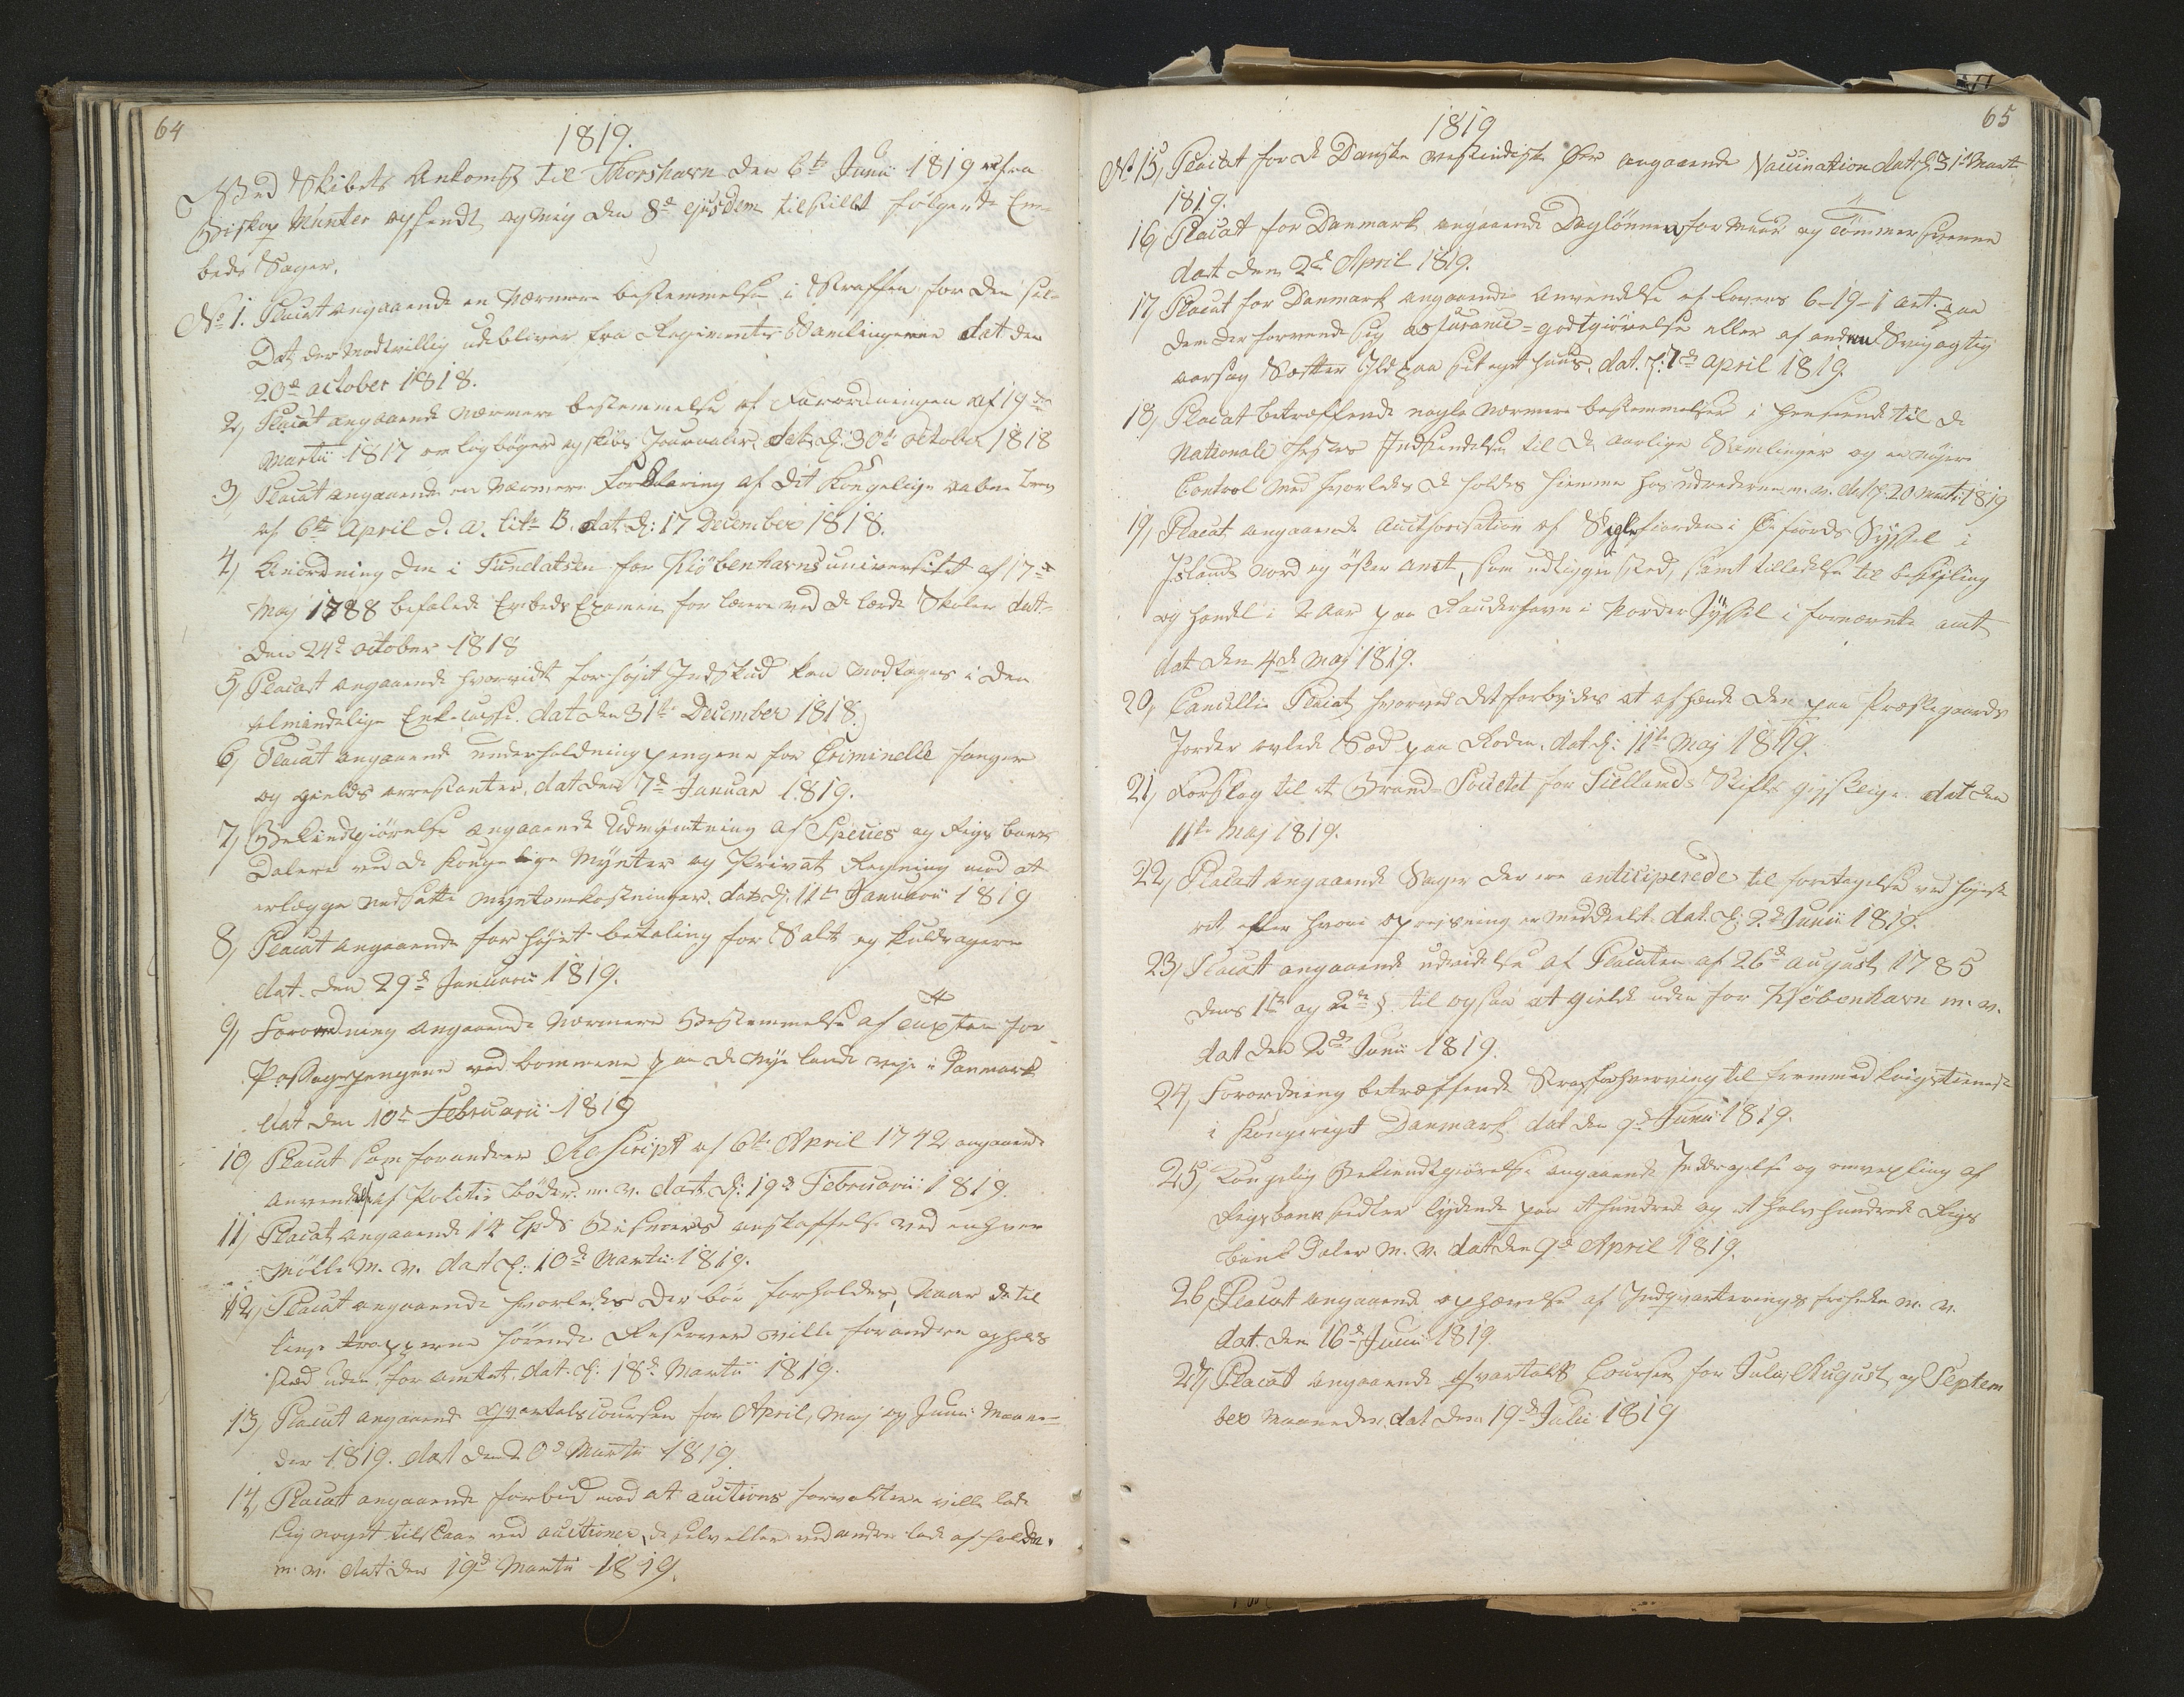 64
1819.
Med Skibets Ankomst til Thorshavn den 6te Junii 1819 er fra
Biskop Münter afsendt og mig den 8de ejusdem tilstillet følgende Em-
beds Sager.
No 1. Placat angaaende en nærmere bestemmelse i Straffen for den Sol-
Dat der modvillig udebliver fra Regiments Samlingerne dat den
20de october 1818.
2, Placat angaaende nærmere bestemmelse af Forordningen af 19de
Martii 1817 om logbøger og skibs Journaler, dat. d: 30te october 1818
3, Placat angaaende en nærmere Forklaring af det Kongelige aabne brev
af 6te April d. a. litr. B. dat. d: 17 December 1818.
4, Anordning den i Fundatsen for Kiøbenhavns universitet af 17de
Maj 1788 befalede Embeds Examen for lærere ved de lærde Skoler dat-
den 24de october 1818
5, Placat angaaende hvorvidt forhøjet Indskud kan modtages i den
almindelige Enke-casse. dat den 31te December 1818.
6, Placat angaaende underholdningspengene for Criminelle fanger
og gields arrestanter. dat den 7de Januar 1819.
7, Bekiendtgiørelse angaaende Udmyntning af Species og Rigsbank
Dalere ved de kongelige Mynter og Privat Regning mod at
erlægge nedsatte Myntomkostninger. dat. d: 11te Januarii 1819
8, Placat angaaende forhøjet betaling for Salt og kuldragere
dat. den 29de Januarii 1819.
9, Forordning angaaende nærmere Bestemmelse af taxten for
Passagepengene ved bommene paa de nye lande veje i Danmark
dat den 10de Februarii 1819
10, Placat som forandrer Rescript af 6te April 1742 angaaende
anvendelse af Politie bøder m. v. dat. d: 19de Februarii 1819.
11, Placat angaaende 14 lpds Bismers anskaffelse ved enhver
Mølle m. v. dat d: 10de Martii 1819.
12, Placat angaaende hvorledes der bør forholdes, naar de til
linje tropperne hørende Reserver ville forandre opholds
sted uden for amtet. dat. d: 18de Martii 1819.
13, Placat angaaende Qvartalscoursen for April, Maj og Junii Maane-
der 1819. dat den 20de Martii 1819.
14, Placat angaaende forbud mod at auctions forvaltere ville lade
sig noget tilslaae ved auctioner, de selv eller ved andre lade afholde.
m. v. dat den 19de Martii 1819.
65
1819
No 15, Placat for de Danske vestindiske Øer angaaende Vaccination dat. d: 31te Martii
1819.
16, Placat for Danmark angaaende Daglønnen for Muur og Tømmersvenne
dat den 2de April 1819.
17, Placat for Danmark angaaende Anvendelse af lovens 6-19-1 art. paa
dem der for vende sig assurance-godtgiørelse eller af anden Svigagtig
aarsag Sætter Ild paa sit eget huus. dat. d: 7de april 1819.
18, Placat betræffende nogle nærmere bestemmelser i henseende til de
Nationale hestes Indsendelse til de aarlige Samlinger og en nøjere
Control med hvorledes de holdes hiemme hos udrederne m. v. dat d: 20 Martii 1819
19, Placat angaaende Authorisation af Seglefiorden i Øefiords Syssel i
Islands Nord og øster Amt, som udliggersted, samt tilladelse til besejling
og handel i 2 Aar paa Raudarhavn i Norder Syssel i fornævnte amt
dat den 4de Maj 1819.
20, Cancellie Placat hvorved det forbydes at afhænde den paa Præstegaards
Jorder avlede Sæd paa Roden. dat. d: 11te Maj 1819.
21, Forslag til et Brand-Societet for Siellands Stifts gejstlige. dat den
11te Maj 1819.
22, Placat angaaende Sager der ere anticiperede til foretagelse ved højeste
ret efter hvori opreisning er meddeelt. dat. d: 2de Junii 1819.
23, Placat angaaende udvidelse af Placaten af 26de august 1785
dens 1te og 2de §. til ogsaa at gielde uden for Kjøbenhavn m. v.
dat den 2de Junii 1819.
24, Forordning betræffende Straf for hverving til fremmed krigstieneste
i Kongeriget Danmark dat den 9de Junii 1819.
25, Kongelig Bekiendtgiørelse angaaende Inddragelse og omvexling af
Rigsbanksedler lydende paa et hundrede og et halvhundrede Rigs
bank Daler m. v. dat den 9de April 1819.
26, Placat angaaende ophævelse af Indqvarterings friheden m. v.
dat. den 16de Junii 1819.
27, Placat angaaende qvartals Coursen for Julii, August, og Septem
ber Maaneder, dat den 19de Julii 1819